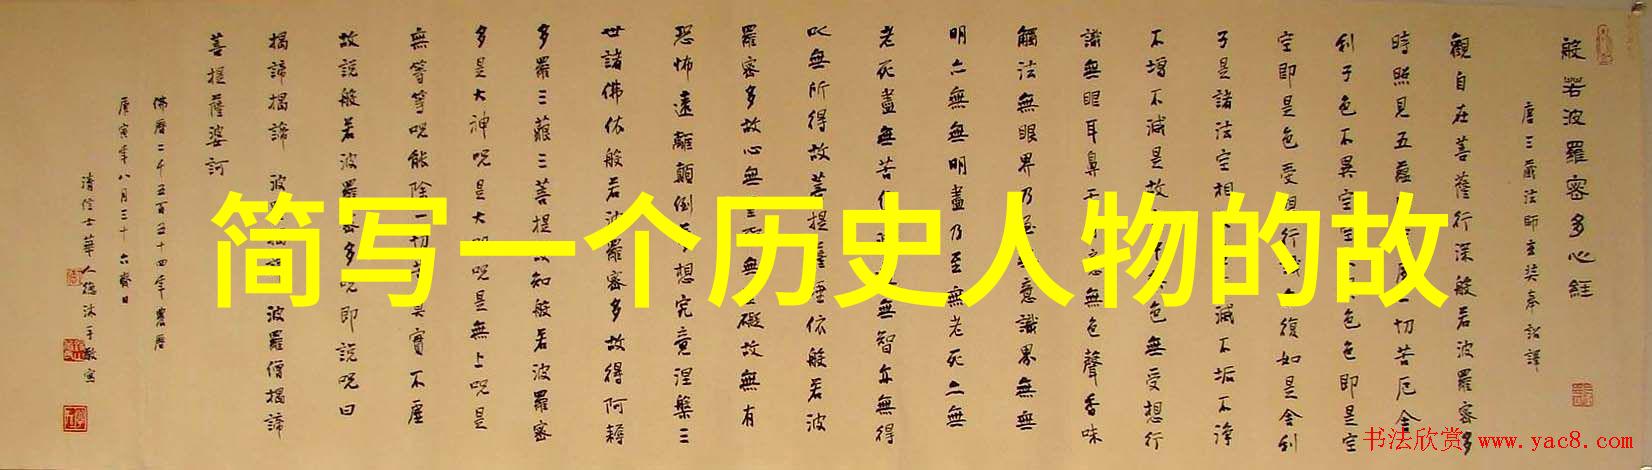 般若波羅密多心経
唐三藏法師玄奘奉詔譯
觀自在菩薩行深般若波羅密多
時照見五蘊皆空度一切苦厄舍
利子色不異空空不異色色即是空
空即是色受想行識亦復如是舍利
子是諸法空相不生不滅不垢不淨
不增不減是故空中無色無受想行
識無眼耳鼻舌身意無色聲香味
觸法無眼界乃至無意識界無無
明亦無無明盡乃至無老死亦無
老死盡無苦集滅道無智亦無得
以無所得故菩提薩埵依般若波
羅密多故心無罣礙無罣礙故無有
恐怖遠離顛倒夢想究竟涅槃三
世諸佛依般若波羅密多故得阿耨
多羅三藐三菩提故知般若波羅密
多是大神呪是大明呪是無上呪是
無等等呪能除一切苦真實不虛
故說般若波羅密多呪即說呪曰
揭諦揭諦 波羅揭諦 波羅僧揭諦
菩提薩婆訶
佛曆二千五百五十四年農曆
庚寅年八月三十六齋日
清信士華人德沐手敬寫
简写一个历史人物的故
书法欣赏 www.yac8.com